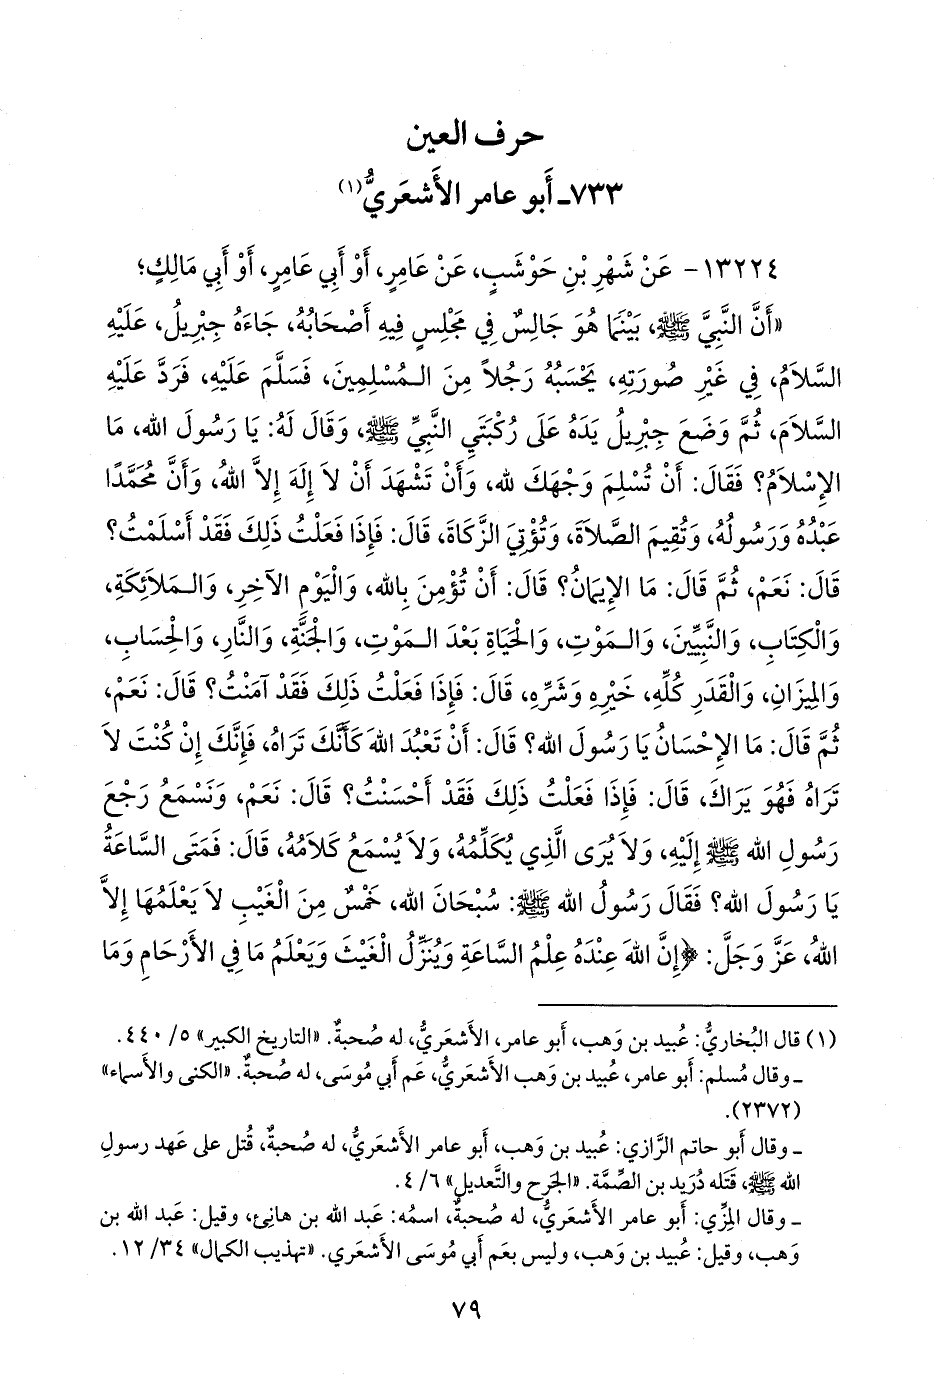 حرف العين
٧٣٣ـ أَبو عامر الأَشعَريُّ(١)
١٣٢٢٤- عَنْ شَهْرِ بْنِ حَوْشَبٍ، عَنْ عَامِرٍ، أَوْ أَبِي عَامِرٍ، أَوْ أَبِي مَالِكٍ؛
«أَنَّ النَّبِيَّ ﷺ، بَيْنَمَا هُوَ جَالِسٌ فِي مَجْلِسٍ فِيهِ أَصْحَابُهُ، جَاءَهُ جِبْرِيلُ، عَلَيْهِ
السَّلَامُ، فِي غَيْرِ صُورَتِهِ، يَحْسَبُهُ رَجُلاً مِنَ الـمُسْلِمِينَ، فَسَلَّمَ عَلَيْهِ، فَرَدَّ عَلَيْهِ
السَّلَامَ، ثُمَّ وَضَعَ جِبْرِيلُ يَدَهُ عَلَى رُكْبَتَيِ النَّبِيِّ ﷺ، وَقَالَ لَهُ: يَا رَسُولَ الله، مَا
الإِسْلَامُ؟ فَقَالَ: أَنْ تُسْلِمَ وَجْهَكَ لله، وَأَنْ تَشْهَدَ أَنْ لَا إِلَهَ إِلاَّ اللهُ، وَأَنَّ مُحَمَّدًا
عَبْدُهُ وَرَسُولُهُ، وَتُقِيمَ الصَّلَاةَ، وَتُؤْتِيَ الزَّكَاةَ، قَالَ: فَإِذَا فَعَلْتُ ذَلِكَ فَقَدْ أَسْلَمْتُ؟
قَالَ: نَعَمْ، ثُمَّ قَالَ: مَا الإِيمَانُ؟ قَالَ: أَنْ تُؤْمِنَ بِالله، وَالْيَوْمِ الآخِرِ، وَالـمَلَائِكَةِ،
وَالْكِتَابِ، وَالنَّبِيِّينَ، وَالـمَوْتِ، وَالْحَيَاةِ بَعْدَ الـمَوْتِ، وَالْجَنَّةِ، وَالنَّارِ، وَالْحِسَابِ،
وَالمِيزَانِ، وَالْقَدَرِ كُلِّهِ، خَيْرِهِ وَشَرِّهِ، قَالَ: فَإِذَا فَعَلْتُ ذَلِكَ فَقَدْ آمَنْتُ؟ قَالَ: نَعَمْ،
ثُمَّ قَالَ: مَا الإِحْسَانُ يَا رَسُولَ الله؟ قَالَ: أَنْ تَعْبُدَ اللهَ كَأَنَّكَ تَرَاهُ، فَإِنَّكَ إِنْ كُنْتَ لَا
تَرَاهُ فَهُوَ يَرَاكَ، قَالَ: فَإِذَا فَعَلْتُ ذَلِكَ فَقَدْ أَحْسَنْتُ؟ قَالَ: نَعَمْ، وَنَسْمَعُ رَجْعَ
رَسُولِ الله ﷺ إِلَيْهِ، وَلَا يُرَى الَّذِي يُكَلِّمُهُ، وَلَا يُسْمَعُ كَلَامُهُ، قَالَ: فَمَتَى السَّاعَةُ
يَا رَسُولَ الله؟ فَقَالَ رَسُولُ الله ﷺ: سُبْحَانَ الله، خَمْسٌ مِنَ الْغَيْبِ لَا يَعْلَمُهَا إِلاَّ
اللهُ، عَزَّ وَجَلَّ: ﴿إِنَّ اللهَ عِنْدَهُ عِلْمُ السَّاعَةِ وَيُنَزِّلُ الْغَيْثَ وَيَعْلَمُ مَا فِي الأَرْحَامِ وَمَا
(١) قال البُخاريُّ: عُبيد بن وَهب، أَبو عامر، الأَشعَريُّ، له صُحبةٌ. «التاريخ الكبير» ٥/ ٤٤٠.
ـ وقال مُسلم: أَبو عامر، عُبيد بن وَهب الأَشعَريُّ، عَم أَبي مُوسَى، له صُحبةٌ. «الكنى والأسماء»
(٢٣٧٢).
ـ وقال أَبو حاتم الرَّازي: عُبيد بن وَهب، أَبو عامر الأَشعَريُّ، له صُحبةٌ، قُتل على عَهد رسولِ
الله ﷺ، قَتَله دُرَيد بن الصِّمَّة. «الجَرح والتَّعديل» ٦/ ٤.
ـ وقال المِزِّي: أَبو عامر الأَشعَريُّ، له صُحبةٌ، اسمُه: عَبد الله بن هانِئ، وقيل: عَبد الله بن
وَهب، وقيل: عُبيد بن وَهب، وليس بعَم أَبي مُوسَى الأَشعَري. «تهذيب الكمال» ٣٤/ ١٢.
٧٩